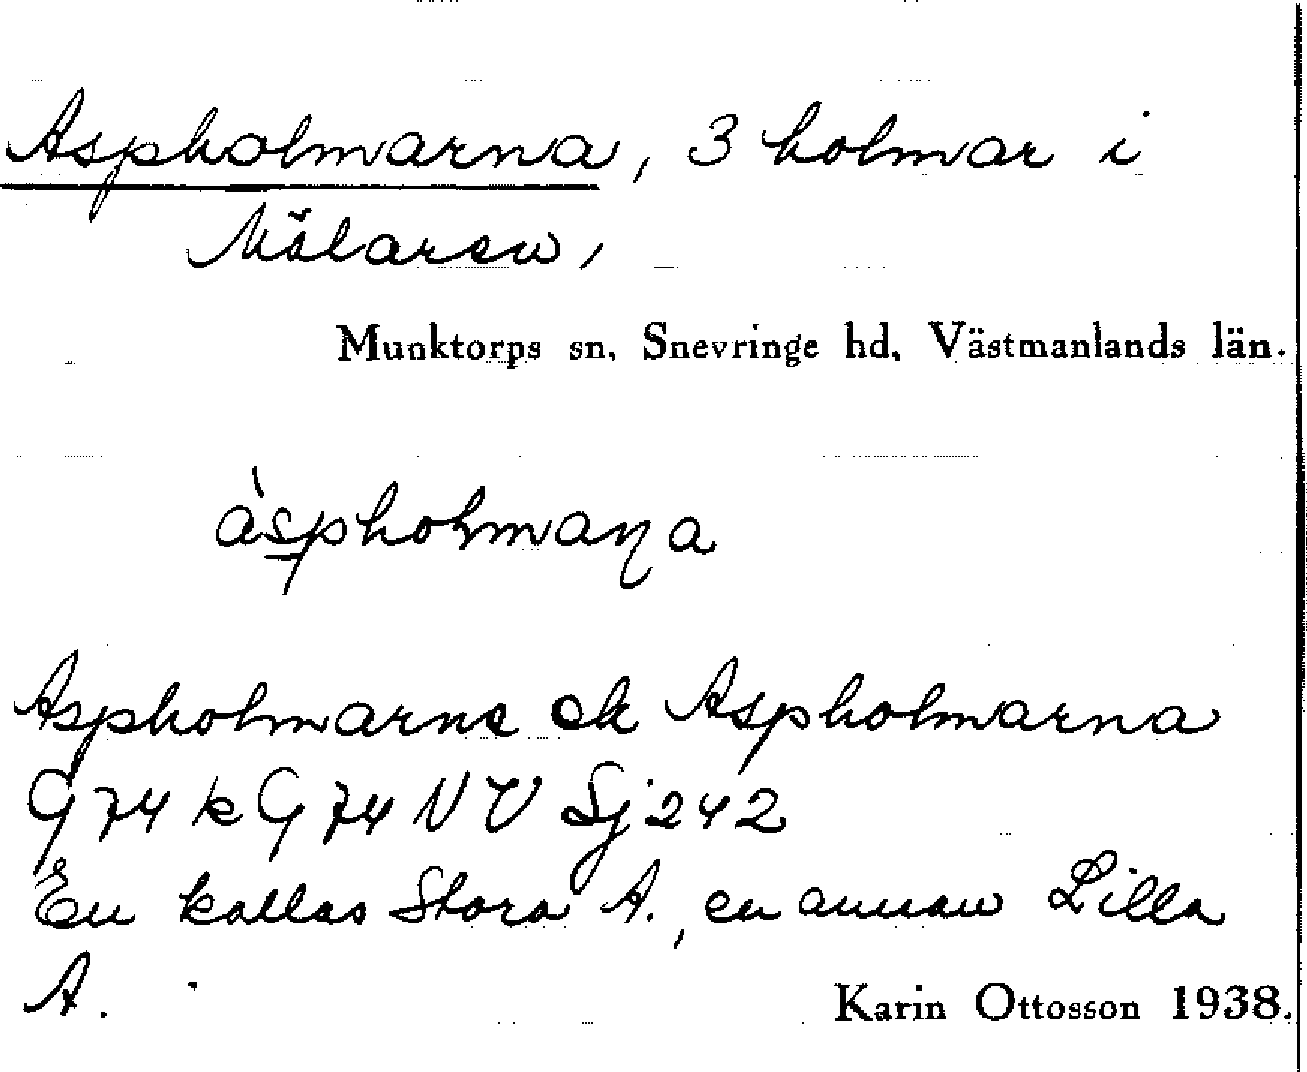 Aspholmarna, 3 holmar i
Mälaren,
Munktorps sn, Snevringe hd, Västmanlands län.
àspholmaɳa
Aspholmarne ek Aspholmarna
G 74 k G 74 NV Sj 242
En kallas Stora A., en annan Lilla
A.
Karin Ottosson 1938.